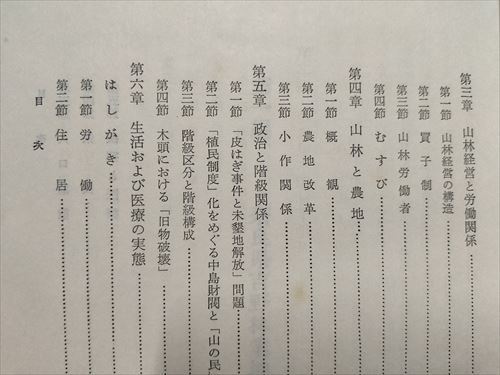 第三章 山林経営と労働関係
第一節 山林経営の構造
第二節 買子制
第三節 山林労働者
第四節 むすび
第四章 山林と農地
第一節 概観
第二節 農地改革
第三節 小作関係
第五章 政治と階級関係
第一節 「皮はぎ事件と未墾地解放」問題
第二節 「植民制度」化をめぐる中島財閥と「山の民
第三節 階級区分と階級構成
第四節 木頭における「旧物破壊」
第六章 生活および医療の実態
はしがき
第一節 労働
第二節 住居
目次